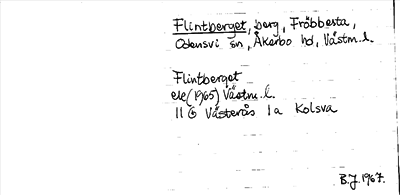 Flintberget, berg, Fröbbesta,
Odensvi sn, Åkerbo hd, Västm. l.
Flintberget
ek (1965) Västm. l.
11 G Västerås 1a Kolsva
B.J. 1967.